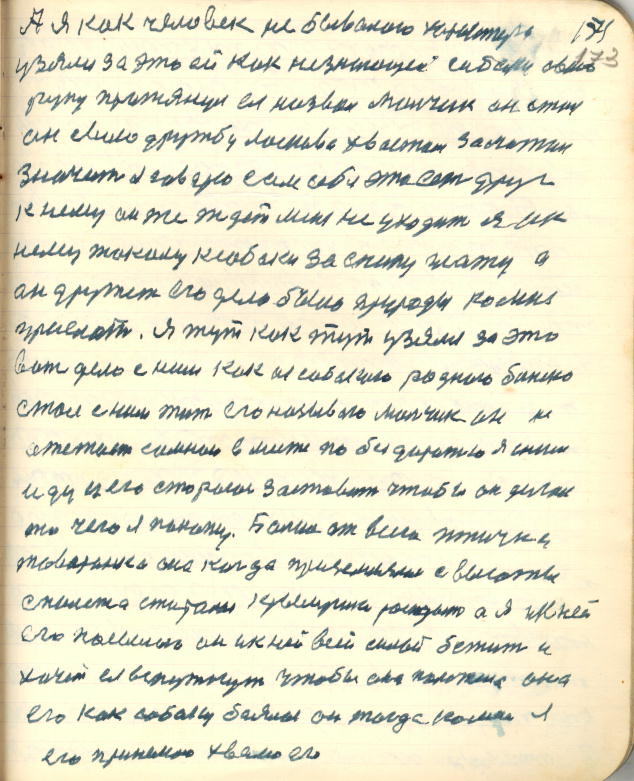 А я как человек не бывалого характера 175
173
узяли за это ей как незнающей собаки свою
руку протянул ея назвал Мальчик он стал
он свою дружбу ласково хвостом замотал
Значит я говорю сам себя это есть друг
к нему он же ждет мене не уходит я ик
нему такому к собаки за спину гляжу а
он дружит его дело было природы ко мне
. Я тут как тут узяли за это
вот дело с ним как с собакою родного близко
стал с ним жить его называю Мальчик он не
отстает самною в мист по без дорожью я с ним
иду и его стараюсь заставить чтобы он делал
то чего я покажу. Больше от всего птичка
она когда приземляли с высоты
а я ик ней
его посылаю он ик ней всей силой бежит и
хочет ея вспугнуть чтобы она полетела она
его как собаку боялся он тогда ко мне я
его принимаю хвалю его